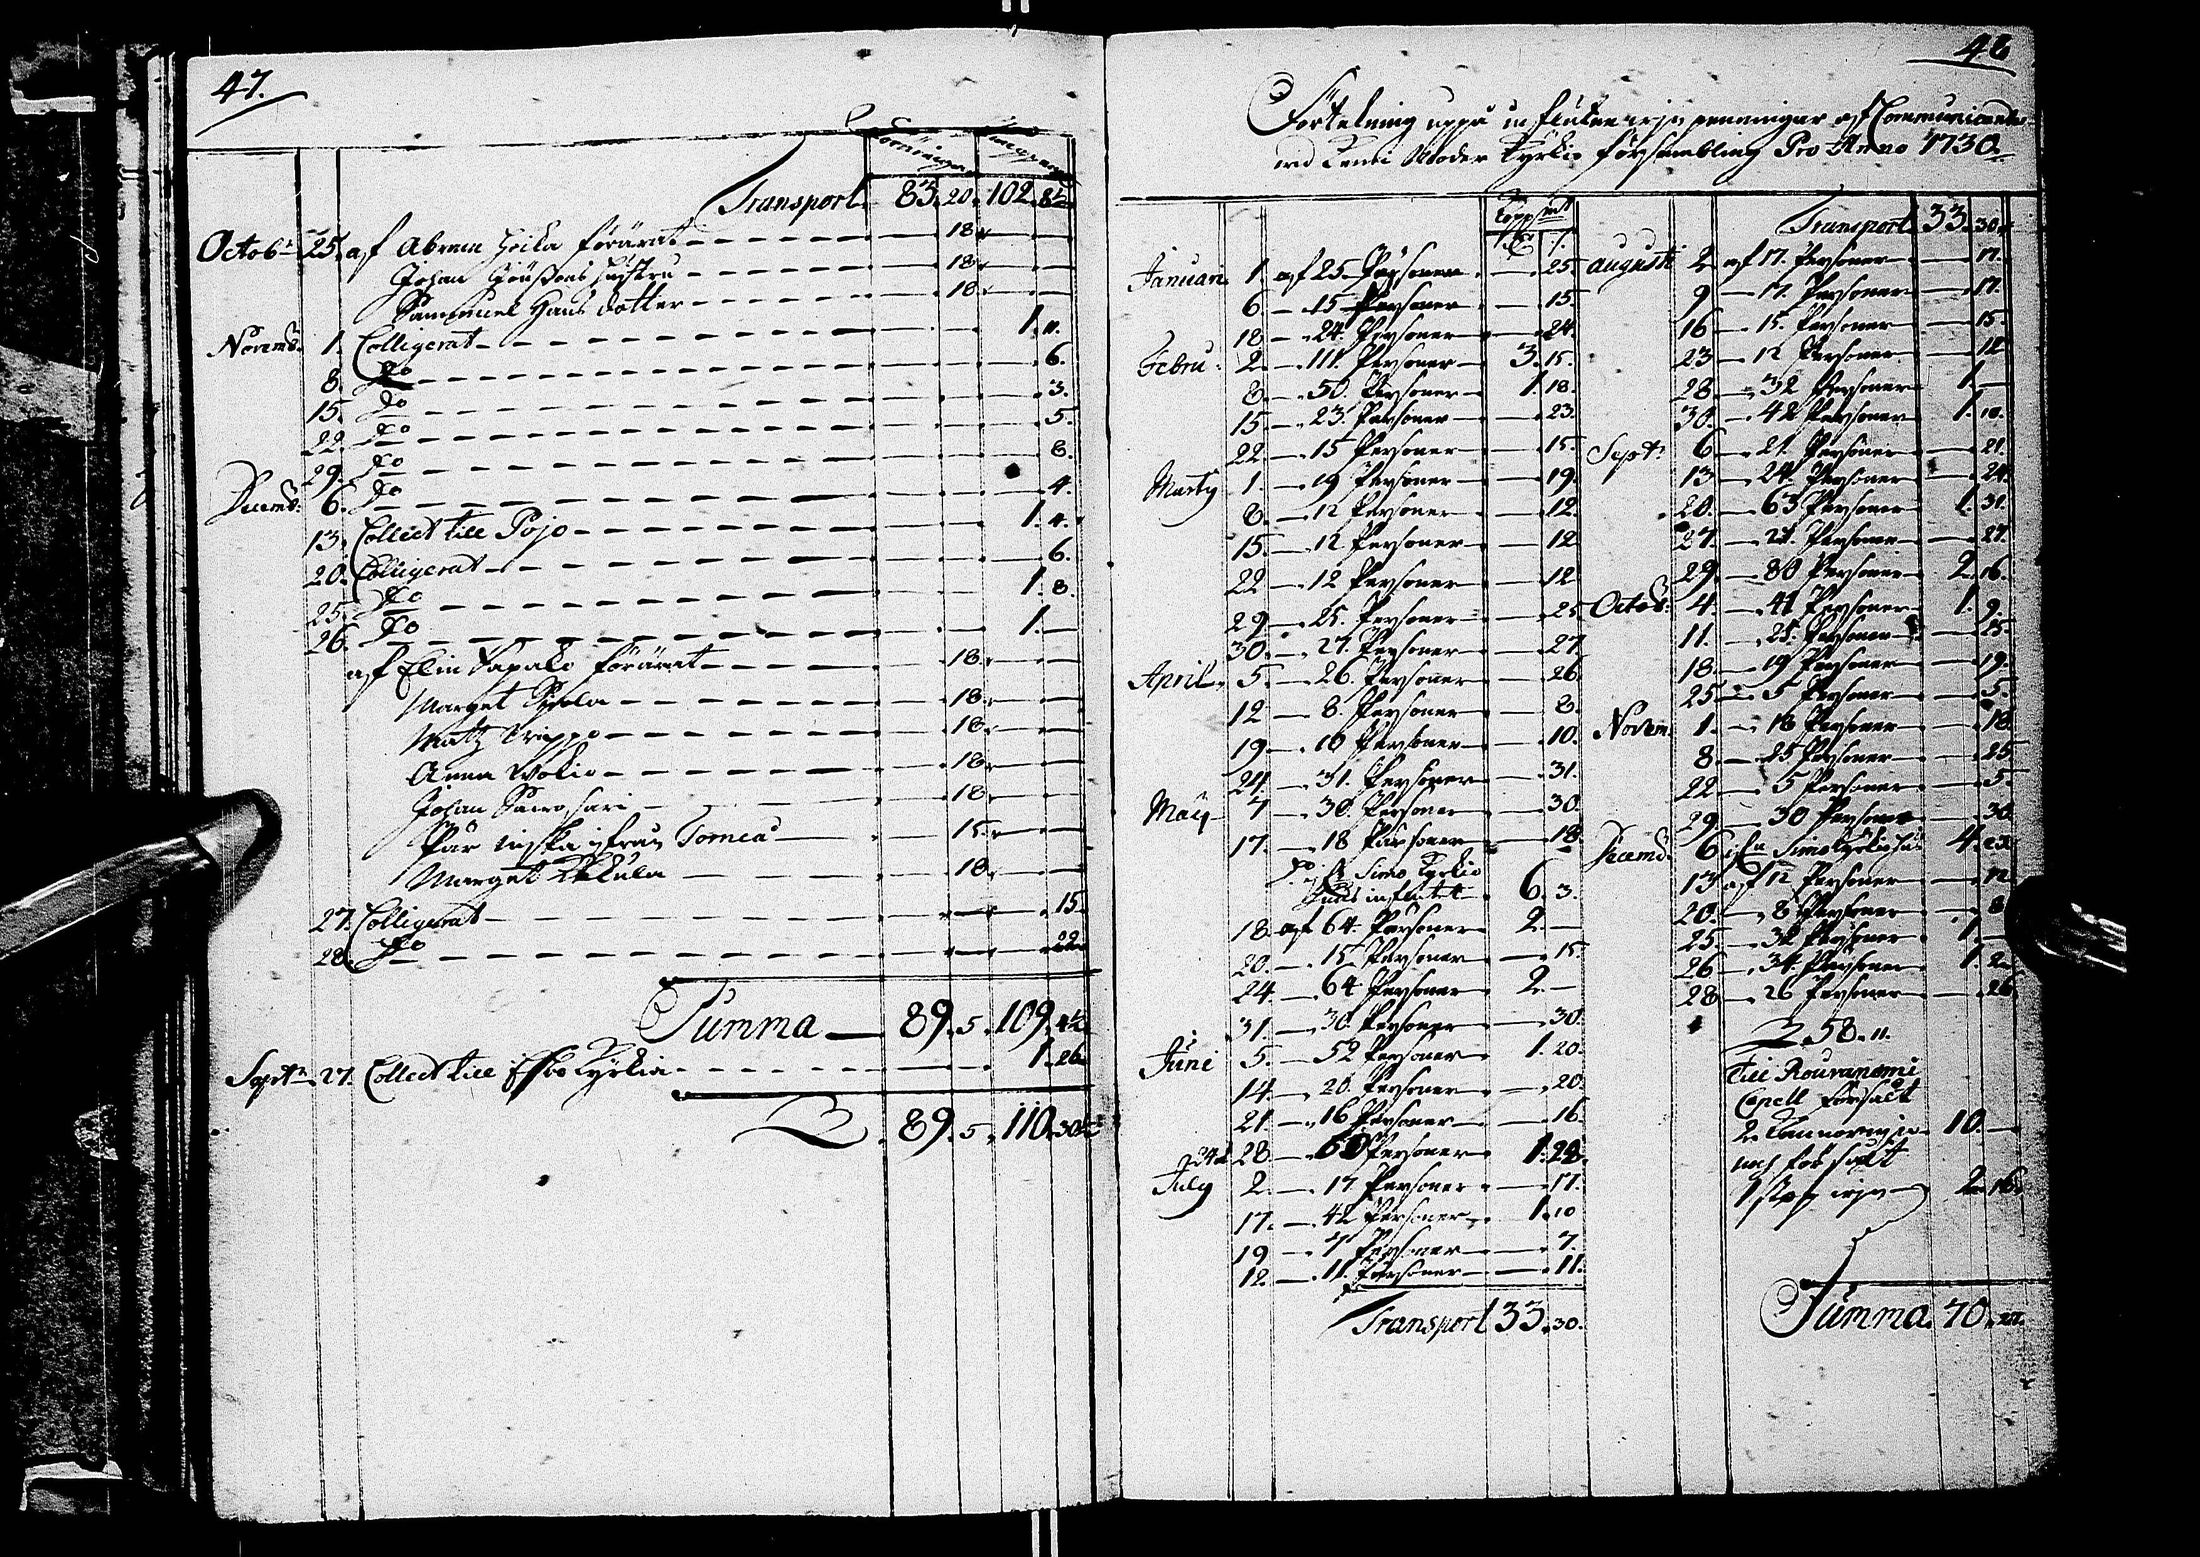 47.
Transport 83. 20. 102. 8½
Octobr 25. af Abram Heika förärat 18.
Johan Hustru 18.
Sammuel Hans dotter 18.
Novemb. 1. Colligerat 1. 11.
8. Do 6.
15. Do 3.
22. Do 5.
29. Do 8.
Decemb. 6. Do 4.
13. Collect till Pojo 1. 4.
20. Colligerat 6.
25. Do 1. 8.
26. Do 1.
af Elin förärat 18.
Marget 18.
Matz 18.
Anna 18.
Johan 18.
Pär ifrån Torneå 15.
Marget 18.
27. Colligerat 15.
28. Do 22.
Summa 89. 5. 109. 4½
Septr. 27. Collect till Esbo Kyrkia 1. 26.
89. 5. 110. 30½
48
Förtekning uppå influtne penningar af Communicanter
wid Kemi Moder Kyrkio försambling Pro Anno 1730.
Januari 1. af 25. Personer 25.
6. 15 Personer 15.
18. 24. Personer 24.
Febru. 2. 111. Personer 3. 15.
8. 50. Personer 1. 18.
15. 23. Personer 23.
22 15 Personer 15.
Marty 1. 19 Personer 19.
8. 12 Personer 12.
15. 12 Personer 12
22 12 Personer 12
29. 25. Personer 25
30. 27. Personer 27.
April. 5. 26. Personer 26.
12 8. Personer 8.
19. 10 Personer 10.
24. 31. Personer 31.
May 7 30. Personer 30.
17. 18 Personer 18.
Do Simo Kyrkio
influtit 6. 3.
18. af 64. Personer 2.
20. 15 Personer 15.
24. 64 Personer 2.
31. 30 Personer 30.
Juni 5. 52 Personer 1. 20.
14. 20. Personer 20.
21. 16 Personer 16.
28. 60 Personer 1. 28.
July 2. 17 Personer 17.
17. 42 Personer 1. 10
19 7 Personer 7.
12. 11. Personer 11.
Transport 33. 30.
Transport 33. 30.
Augusti 2. af 17. Personer 17.
9 17. Personer 17.
16 15. Personer 15.
23 12 Personer 12
28. 32 Personer 1.
30. 42 Personer 1. 10.
Septr 6 21. Personer 21.
13 24. Personer 24.
20. 63 Personer 1. 31.
27. 27. Personer 27.
29 80 Personer 2. 16.
Octob. 4. 41 Personer 1. 9.
11. 25. Personer 25.
18. 19 Personer 19.
25. 5 Personer 5.
Novem. 1. 18 Personer 18.
8. 25 Personer 25
22 5 Personer 5.
29. 30 Personer 30
Decemb. 6 Simo Kyrkio 4. 23.
13 af 12 Personer 12
20. 8 Personer 8
25. 32 Personer 1.
26 34. Personer 1. 2.
28 26 Personer 26
58. 11.
Till Rouvaniemi
Capell försålt
2. Kannor 10.
och försålt
1 stop 2. 16.
Summa 70. 27.